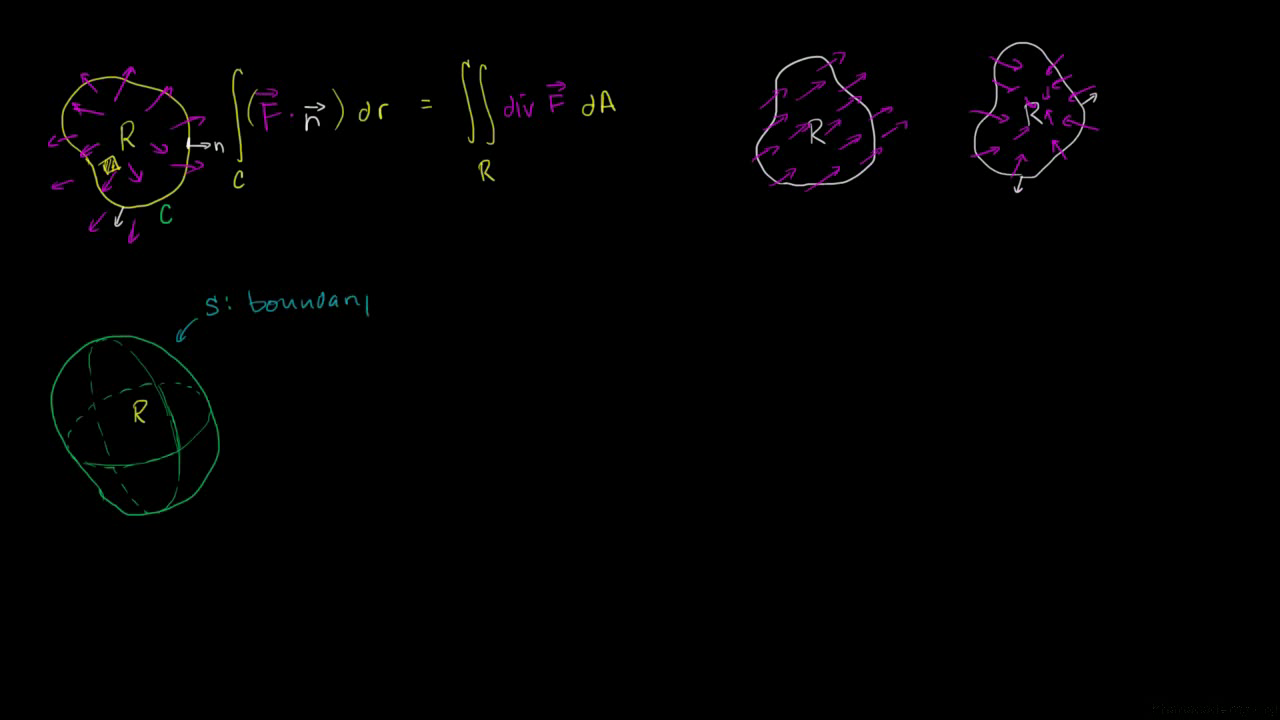 R
n
C
∫_C (F⃗ · n⃗) dr = ∬_R div F⃗ dA
R
R
S: boundary
R